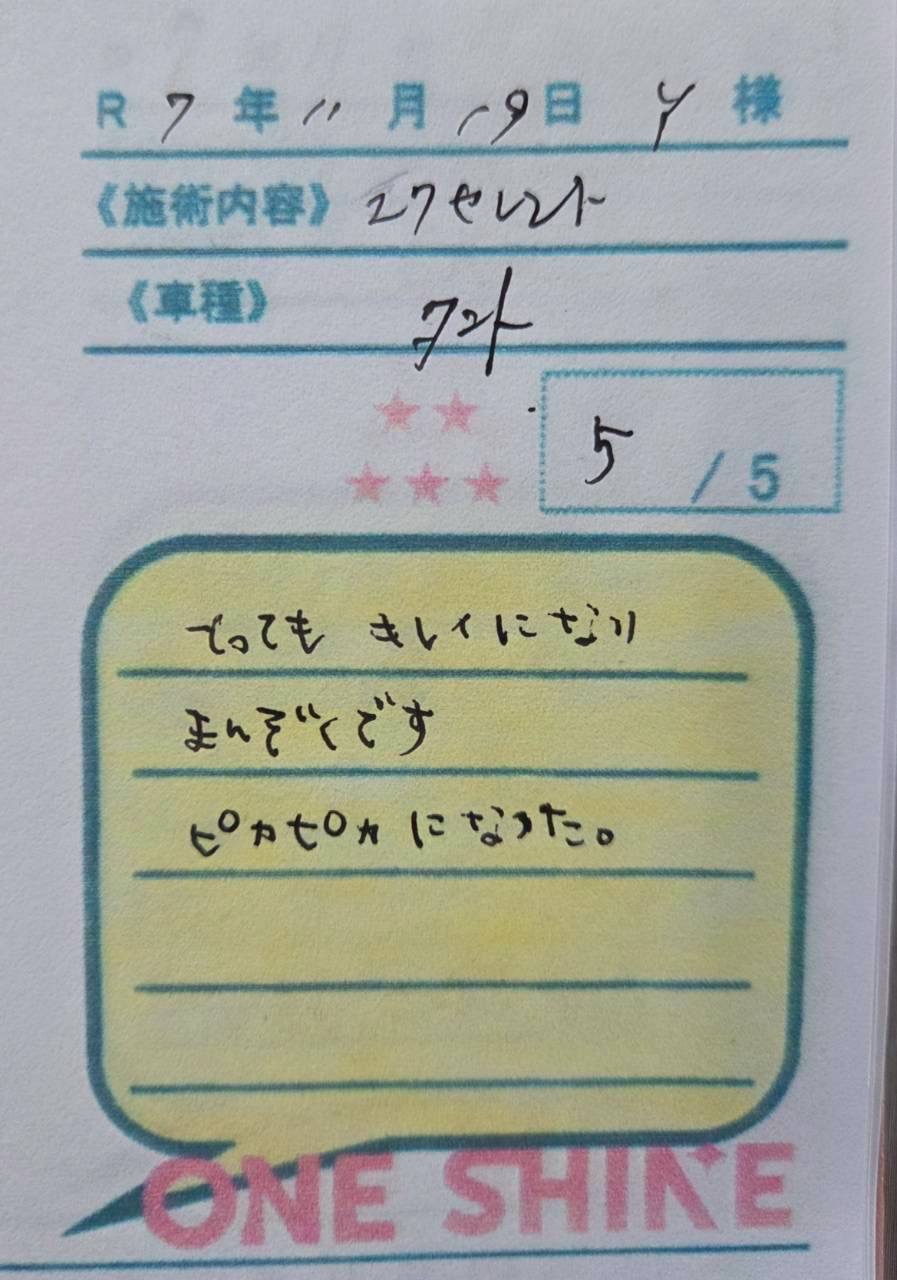 R 7 年 11 月 19 日 Y 様
《施術内容》 エクセレント
《車種》 タント
5 / 5
とっても キレイになり
まんぞくです
ピカピカ になった。
ONE SHINE